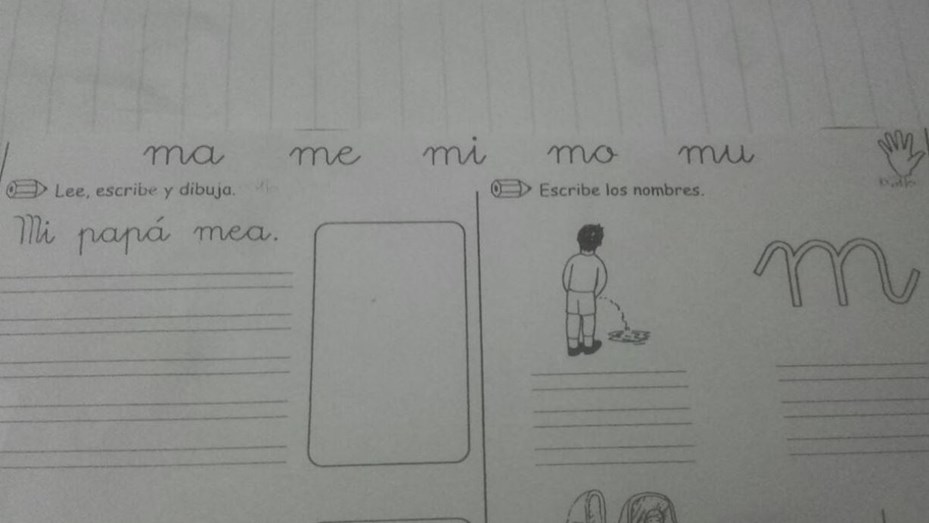 ma me mi mo mu
Lee, escribe y dibuja.
Mi papá mea.
Escribe los nombres.
m